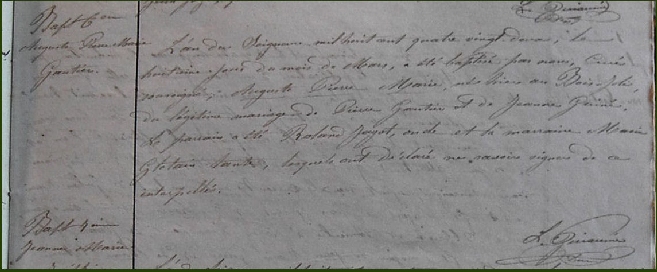 Bapt 6eme
Auguste Pierre Marie
Gautier.
L'an du Seigneur mil huit cent quatre vingt deux, le
huitième jour du mois de Mars, a été baptisé par nous, Curé
soussigné, Auguste Pierre Marie, né hier au
du légitime mariage de Pierre Gautier et de Jeanne
Le parrain a été Roland Jagot, oncle et la marraine Marie
tante, lesquels ont déclaré ne savoir signer de ce
interpellés.
Bapt 7eme
Jeanne Marie